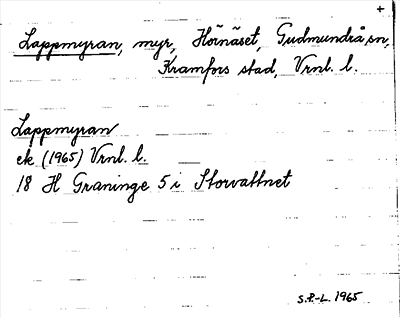 +
Lappmyran, myr, Hörnäset, Gudmundrå sn,
Kramfors stad, Vrnl. l.
Lappmyran
ek (1965) Vrnl. l.
18 H Graninge 5 i Storvattnet
S.P.-L. 1965